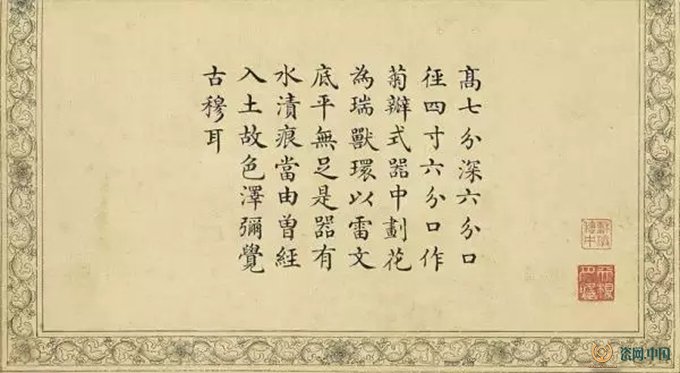 高七分深六分口
徑四寸六分口作
菊瓣式器中劃花
為瑞獸環以雷文
底平無足是器有
水漬痕當由曾經
入土故色澤彌覺
古穆耳
瓷网.中国